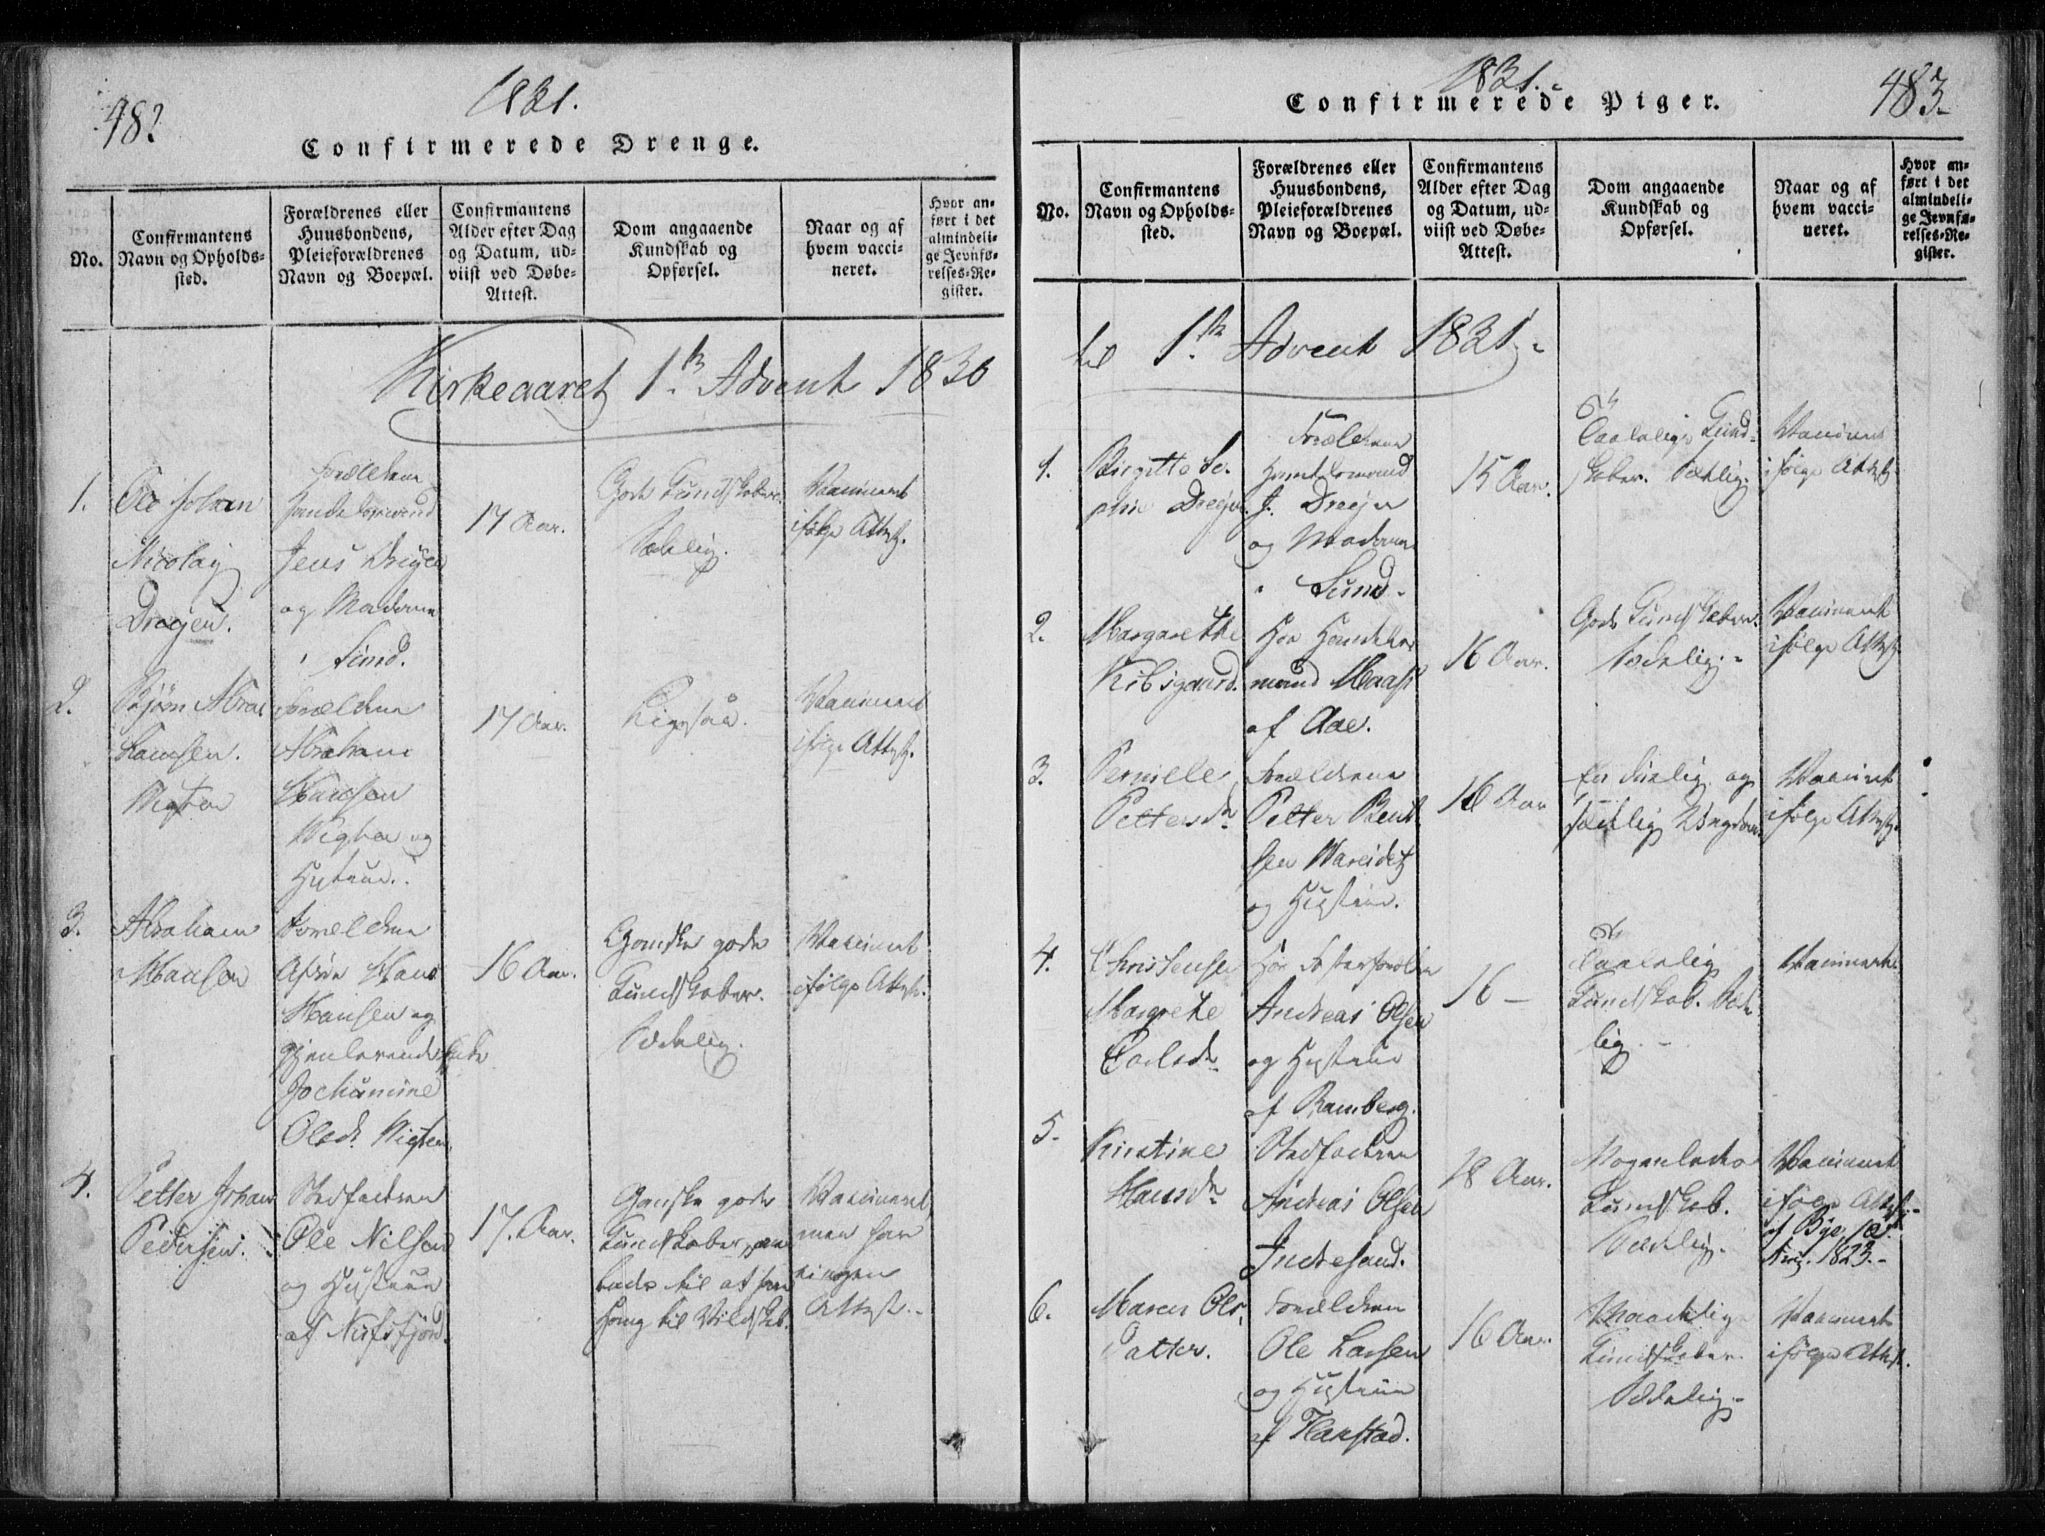 482
1831.
Confirmerede Drenge.
No.
Confirmantens
Navn og Opholds-
sted.
Forældrenes eller
Huusbondens,
Pleieforældrenes
Navn og Boepæl.
Confirmantens
Alder efter Dag
og Datum, ud-
viist ved Døbe-
Attest.
Dom angaaende
Kundskab og
Opførsel.
Naar og af
hvem vacci-
neret.
Hvor an-
ført i det
almindeli-
ge Jevnfø-
relses-Re-
gister.
Kirkeaaret 1ste Advent 1830
1.
Johan
Nicolay
Dreyer.
Forældrene
Handelsmand
Jens Dreyer
og Madame
i Sund.
17 Aar.
Gode Kundskaber.
Sædelig.
Vaccineret
ifølge Attest.
2.
Bjørn Abra-
hamsen.
Vigten
Forældrene
Abraham
Hansen
Vigten og
Hustrue.
17 Aar.
Ligesaa.
Vaccineret
ifølge Attest.
3.
Abraham
Hansen
Forældrene
Afdøde Hans
Hansen og
gjenlevende Enke
Jochumine
Olsdr Vigten.
16 Aar.
Ganske gode
Kundskaber.
Sædelig.
Vaccineret
ifølge Attest.
4.
Petter Johan
Pedersen.
Stedfadren
Ole Nilsen
og Hustrue
af Nusfjord.
17. Aar.
Ganske gode
Kundskaber,
til at
hang til Vildskab.
Vaccineret,
men har
ingen
Attest.
1831.
Confirmerede Piger.
483
No.
Confirmantens
Navn og Opholds-
sted.
Forældrenes eller
Huusbondens,
Pleieforældrenes
Navn og Boepæl.
Confirmantens
Alder efter Dag
og Datum, ud-
viist ved Døbe-
Attest.
Dom angaaende
Kundskab og
Opførsel.
Naar og af
hvem vacci-
neret.
Hvor an-
ført i det
almindeli-
ge Jevnfø-
relses-Re-
gister.
til 1ste Advent 1831.
1.
Birgitte So-
phie Dreyer.
Forældrene
Handelsmand
J. Dreyer
og Madame
i Sund.
15 Aar.
Taalelige Kund-
skaber. Sædelig.
Vaccineret
ifølge Attest.
2.
Margarethe
Kibsgaard.
Hos Handels-
mand Maass
af Aae.
16 Aar.
Gode Kundskaber.
Sædelig.
Vaccineret
ifølge Attest.
3.
Pernille
Pettersdr
Forældrene
Petter Bent-
sen Wareidet
og Hustrue.
16 Aar
og
sædelig Ungdom.
Vaccineret
ifølge Attest.
4.
Christense
Margrete
Carlsdr
Hos Fosterforældrene
Andreas Olsen
og Hustrue
af Ramberg.
16 —
Taalelig
Kundskab. Sæde-
lig.
Vaccineret
5.
Kirstine
Hansdr
Stedfadren
Andreas Olsen
Indresand.
18 Aar.
Kundskab.
Sædelig.
Vaccineret
ifølge Attest
af Bye,
Aug. 1823.
6.
Maren Ols-
datter.
Forældrene
Ole Larsen
og Hustrue
af Flakstad.
16 Aar.
Maadelige
Kundskaber.
Sædelig.
Vaccineret
ifølge Attest.